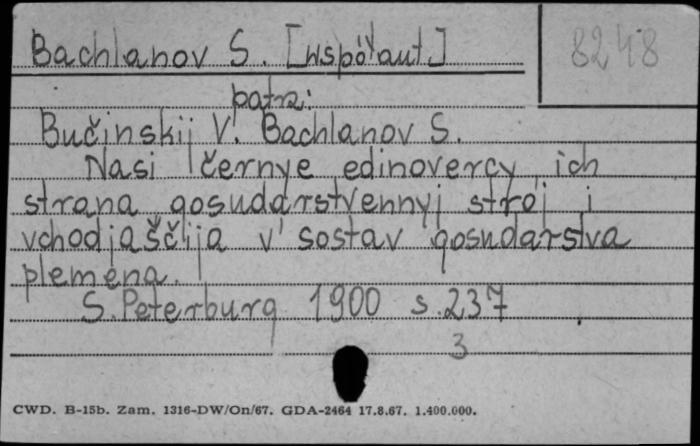 Bachlanov S. [współaut.]
8248
patrz:
Bučinskij V. Bachlanov S.
Nasi černye edinovercy, ich
strana gosudarstvennyj stroj i
vchodjaščija v sostav gosudarstva
plemena.
S. Peterburg 1900 s. 237
3
CWD. B-15b. Zam. 1316-DW/On/67. GDA-2464 17.8.67. 1.400.000.